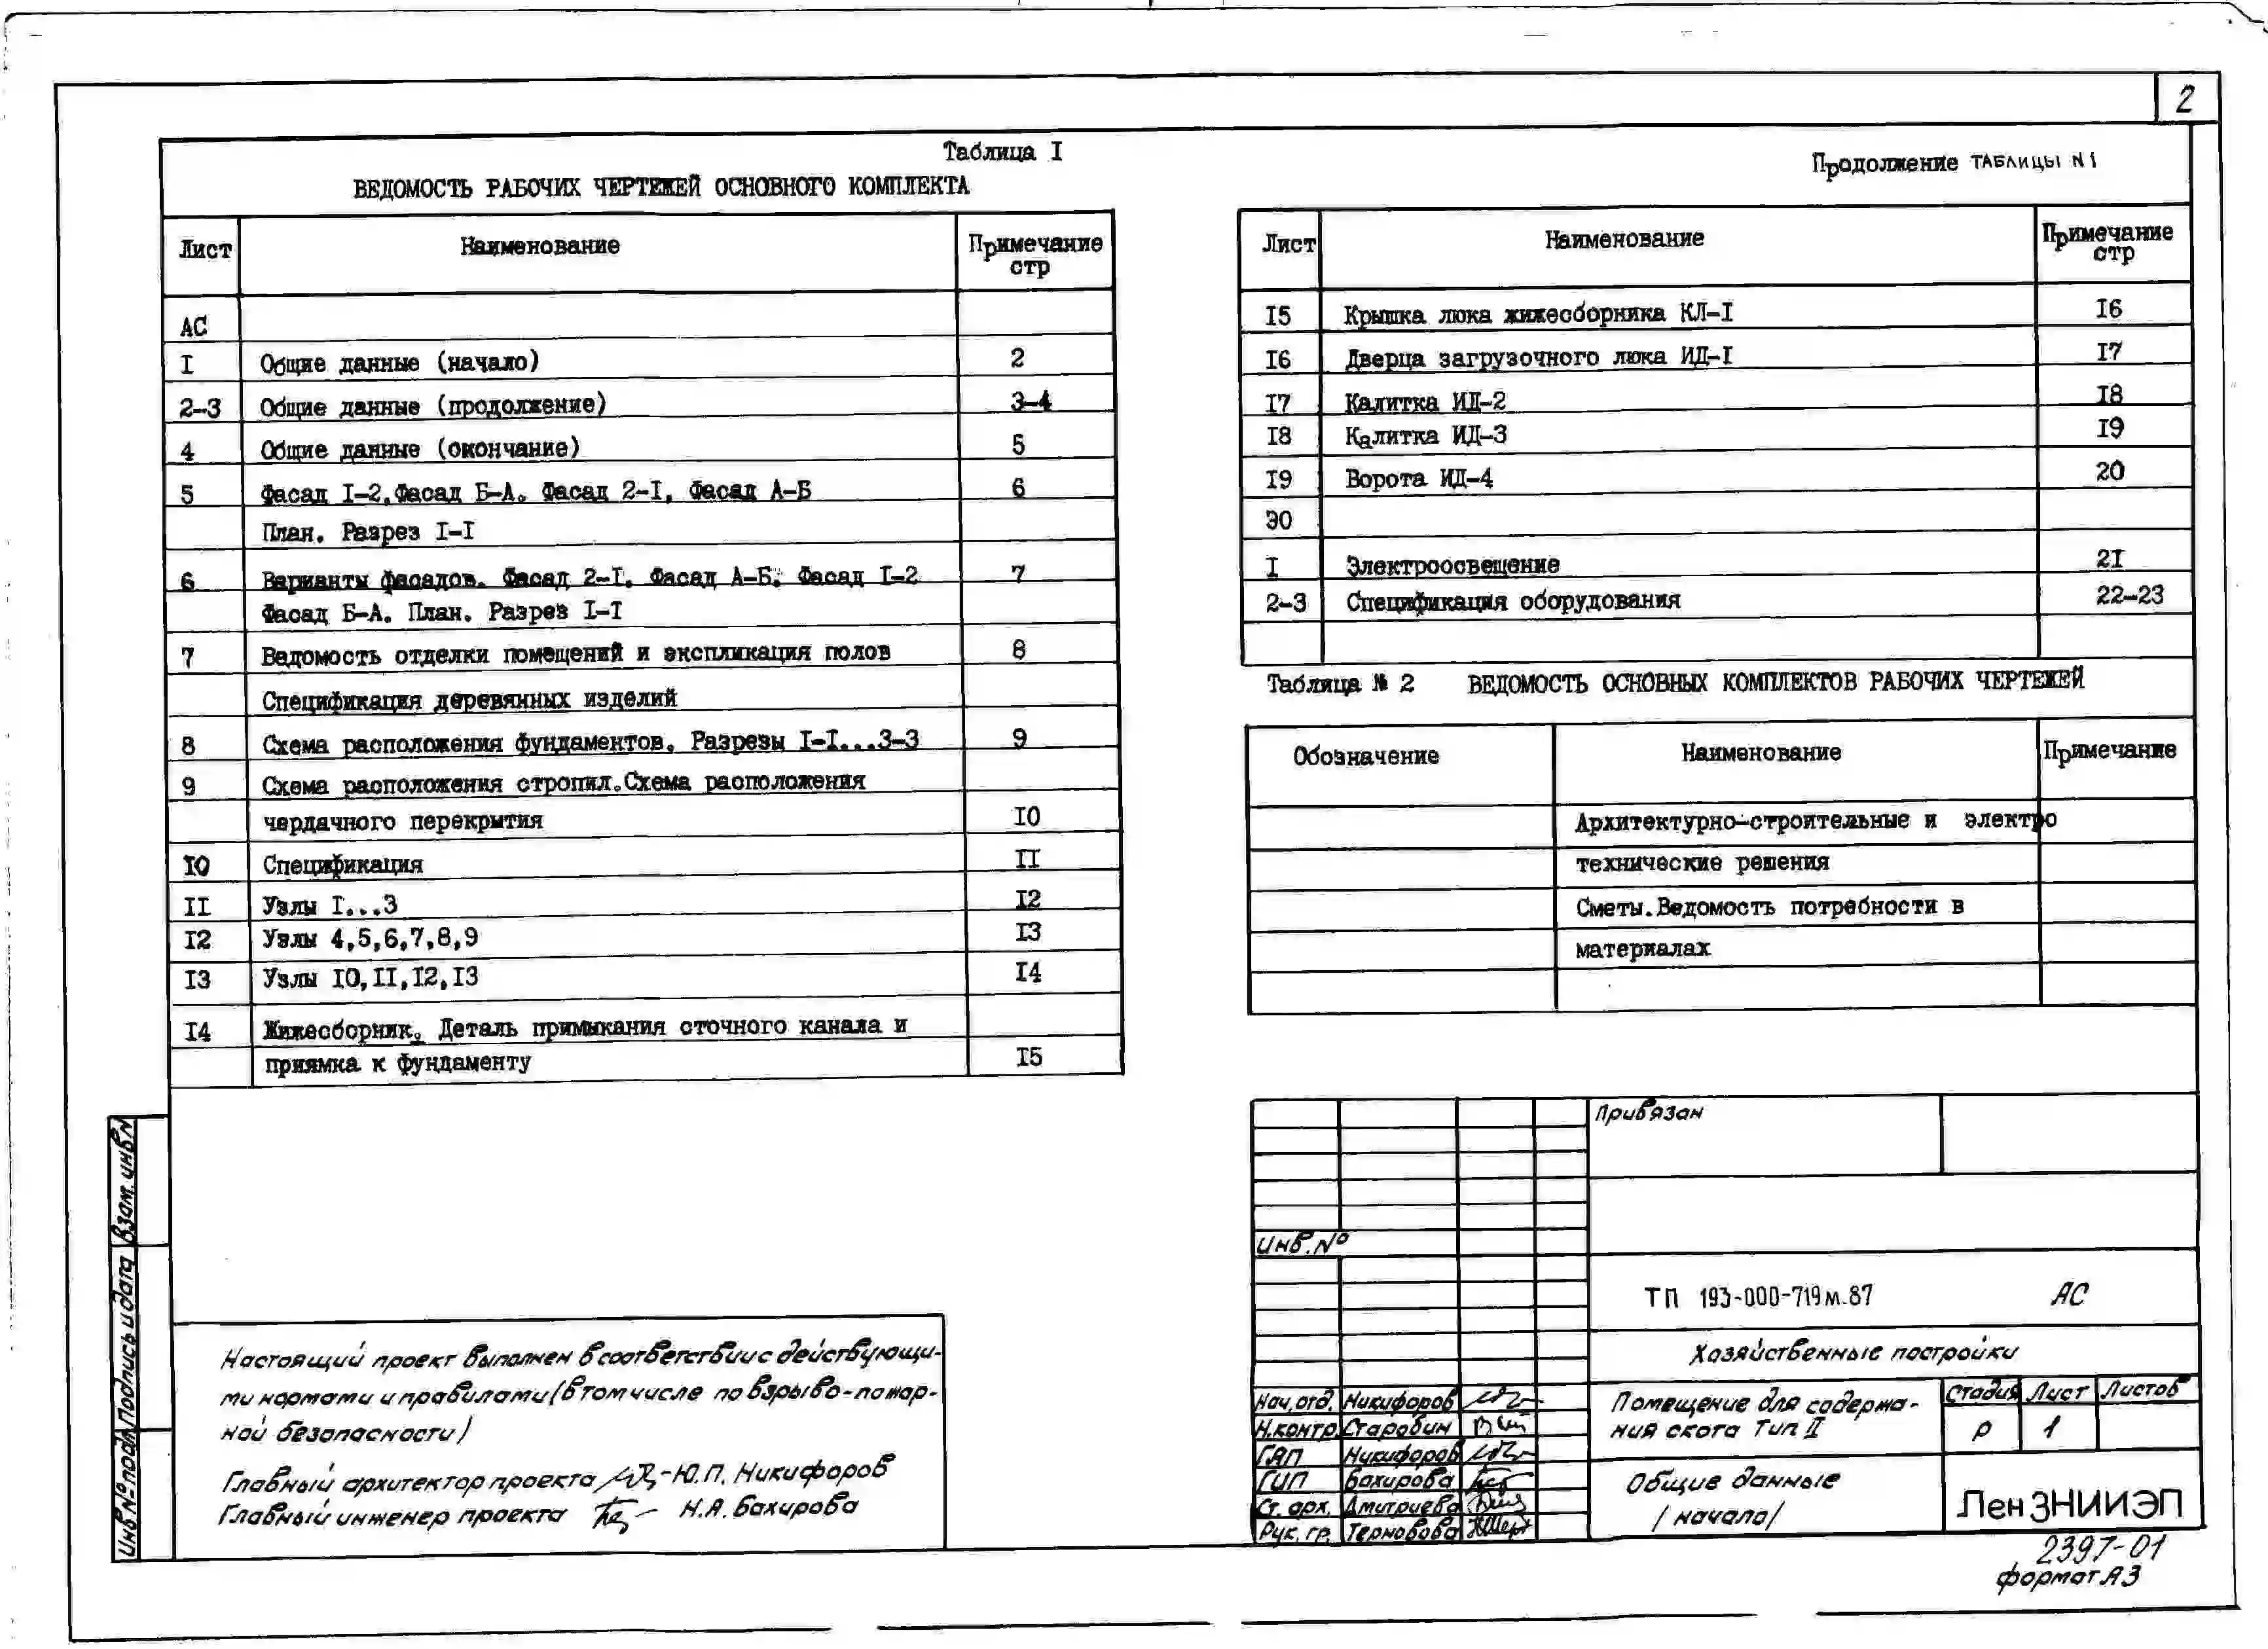 2
Таблица I
ВЕДОМОСТЬ РАБОЧИХ ЧЕРТЕЖЕЙ ОСНОВНОГО КОМПЛЕКТА
Лист Наименование Примечание стр
АС
I Общие данные (начало) 2
2-3 Общие данные (продолжение) 3-4
4 Общие данные (окончание) 5
5 Фасад I-2. Фасад Б-А. Фасад 2-I. Фасад А-Б 6
План. Разрез I-I
6 Варианты фасадов. Фасад 2-I. Фасад А-Б. Фасад I-2 7
Фасад Б-А. План. Разрез I-I
7 Ведомость отделки помещений и экспликация полов 8
Спецификация деревянных изделий
8 Схема расположения фундаментов. Разрезы I-I...3-3 9
9 Схема расположения стропил. Схема расположения
чердачного перекрытия 10
10 Спецификация II
II Узлы I...3 I2
I2 Узлы 4,5,6,7,8,9 I3
I3 Узлы I0,II,I2,I3 I4
I4 Жижесборник. Деталь примыкания сточного канала и
приямка к фундаменту I5
Продолжение ТАБЛИЦЫ N1
Лист Наименование Примечание стр
I5 Крышка люка жижесборника КЛ-I I6
I6 Дверца загрузочного люка ИД-I I7
I7 Калитка ИД-2 I8
I8 Калитка ИД-3 I9
I9 Ворота ИД-4 20
ЭО
I Электроосвещение 2I
2-3 Спецификация оборудования 22-23
Таблица № 2 ВЕДОМОСТЬ ОСНОВНЫХ КОМПЛЕКТОВ РАБОЧИХ ЧЕРТЕЖЕЙ
Обозначение Наименование Примечание
Архитектурно-строительные и электро
технические решения
Сметы. Ведомость потребности в
материалах
Взам. инв N
Подпись и дата
Инв № подл
Настоящий проект выполнен в соответствии с действующи-
ми нормами и правилами (в том числе по взрыво-пожар-
ной безопасности)
Главный архитектор проекта Ю.П. Никифоров
Главный инженер проекта Н.А. Бахирова
Привязан
Инв. №
ТП 193-000-719м.87 АС
Хозяйственные постройки
Нач. отд. Никифоров
Н.контр. Старобин
ГАП Никифоров
ГИП Бахирова
Ст. арх. Дмитриева
Рук. гр. Терновова
Помещение для содержа-
ния скота Тип II
Стадия Лист Листов
Р 1
Общие данные
/начало/
ЛенЗНИИЭП
2397-01
формат А3